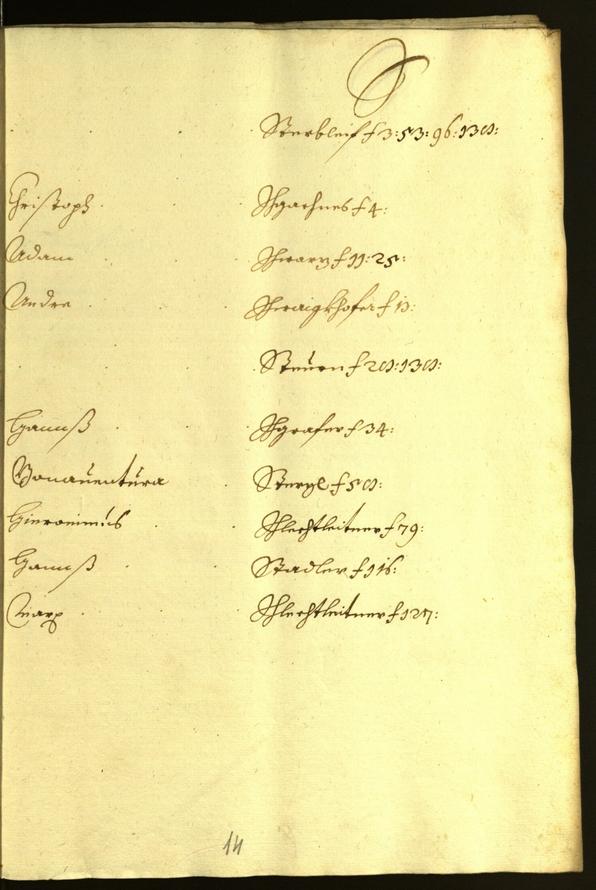 S
Sterbleif f 3: 53: 96: 130:
Christoph Schgachnes f 4:
Adam Schwarz f 11: 25:
Andre Schwaigkhofer f 13:
Steurn f 20: 130:
Hannß Schgrafer f 34:
Bonauentura Sterzl f 50:
Hieronimus Schlechtleitner f 79:
Hannß Stadler f 116:
Marx Schlechtleitner f 127:
14